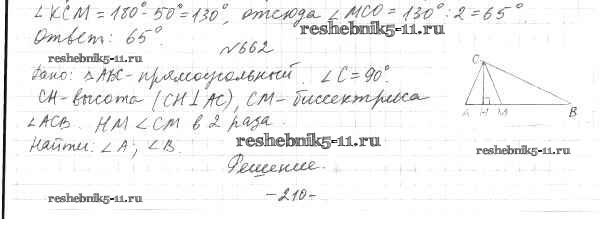 ∠KCM = 180° - 50° = 130°, отсюда ∠MCO = 130° : 2 = 65°
reshebnik5-11.ru
Ответ: 65°.
№662
reshebnik5-11.ru
Дано: △ABC - прямоугольный. ∠C = 90°.
CH - высота (CH ⊥ AC), CM - биссектриса
∠ACB. HM < CM в 2 раза.
reshebnik5-11.ru
Найти: ∠A; ∠B.
C
A H M B
reshebnik5-11.ru
Решение.
reshebnik5-11.ru
-210-